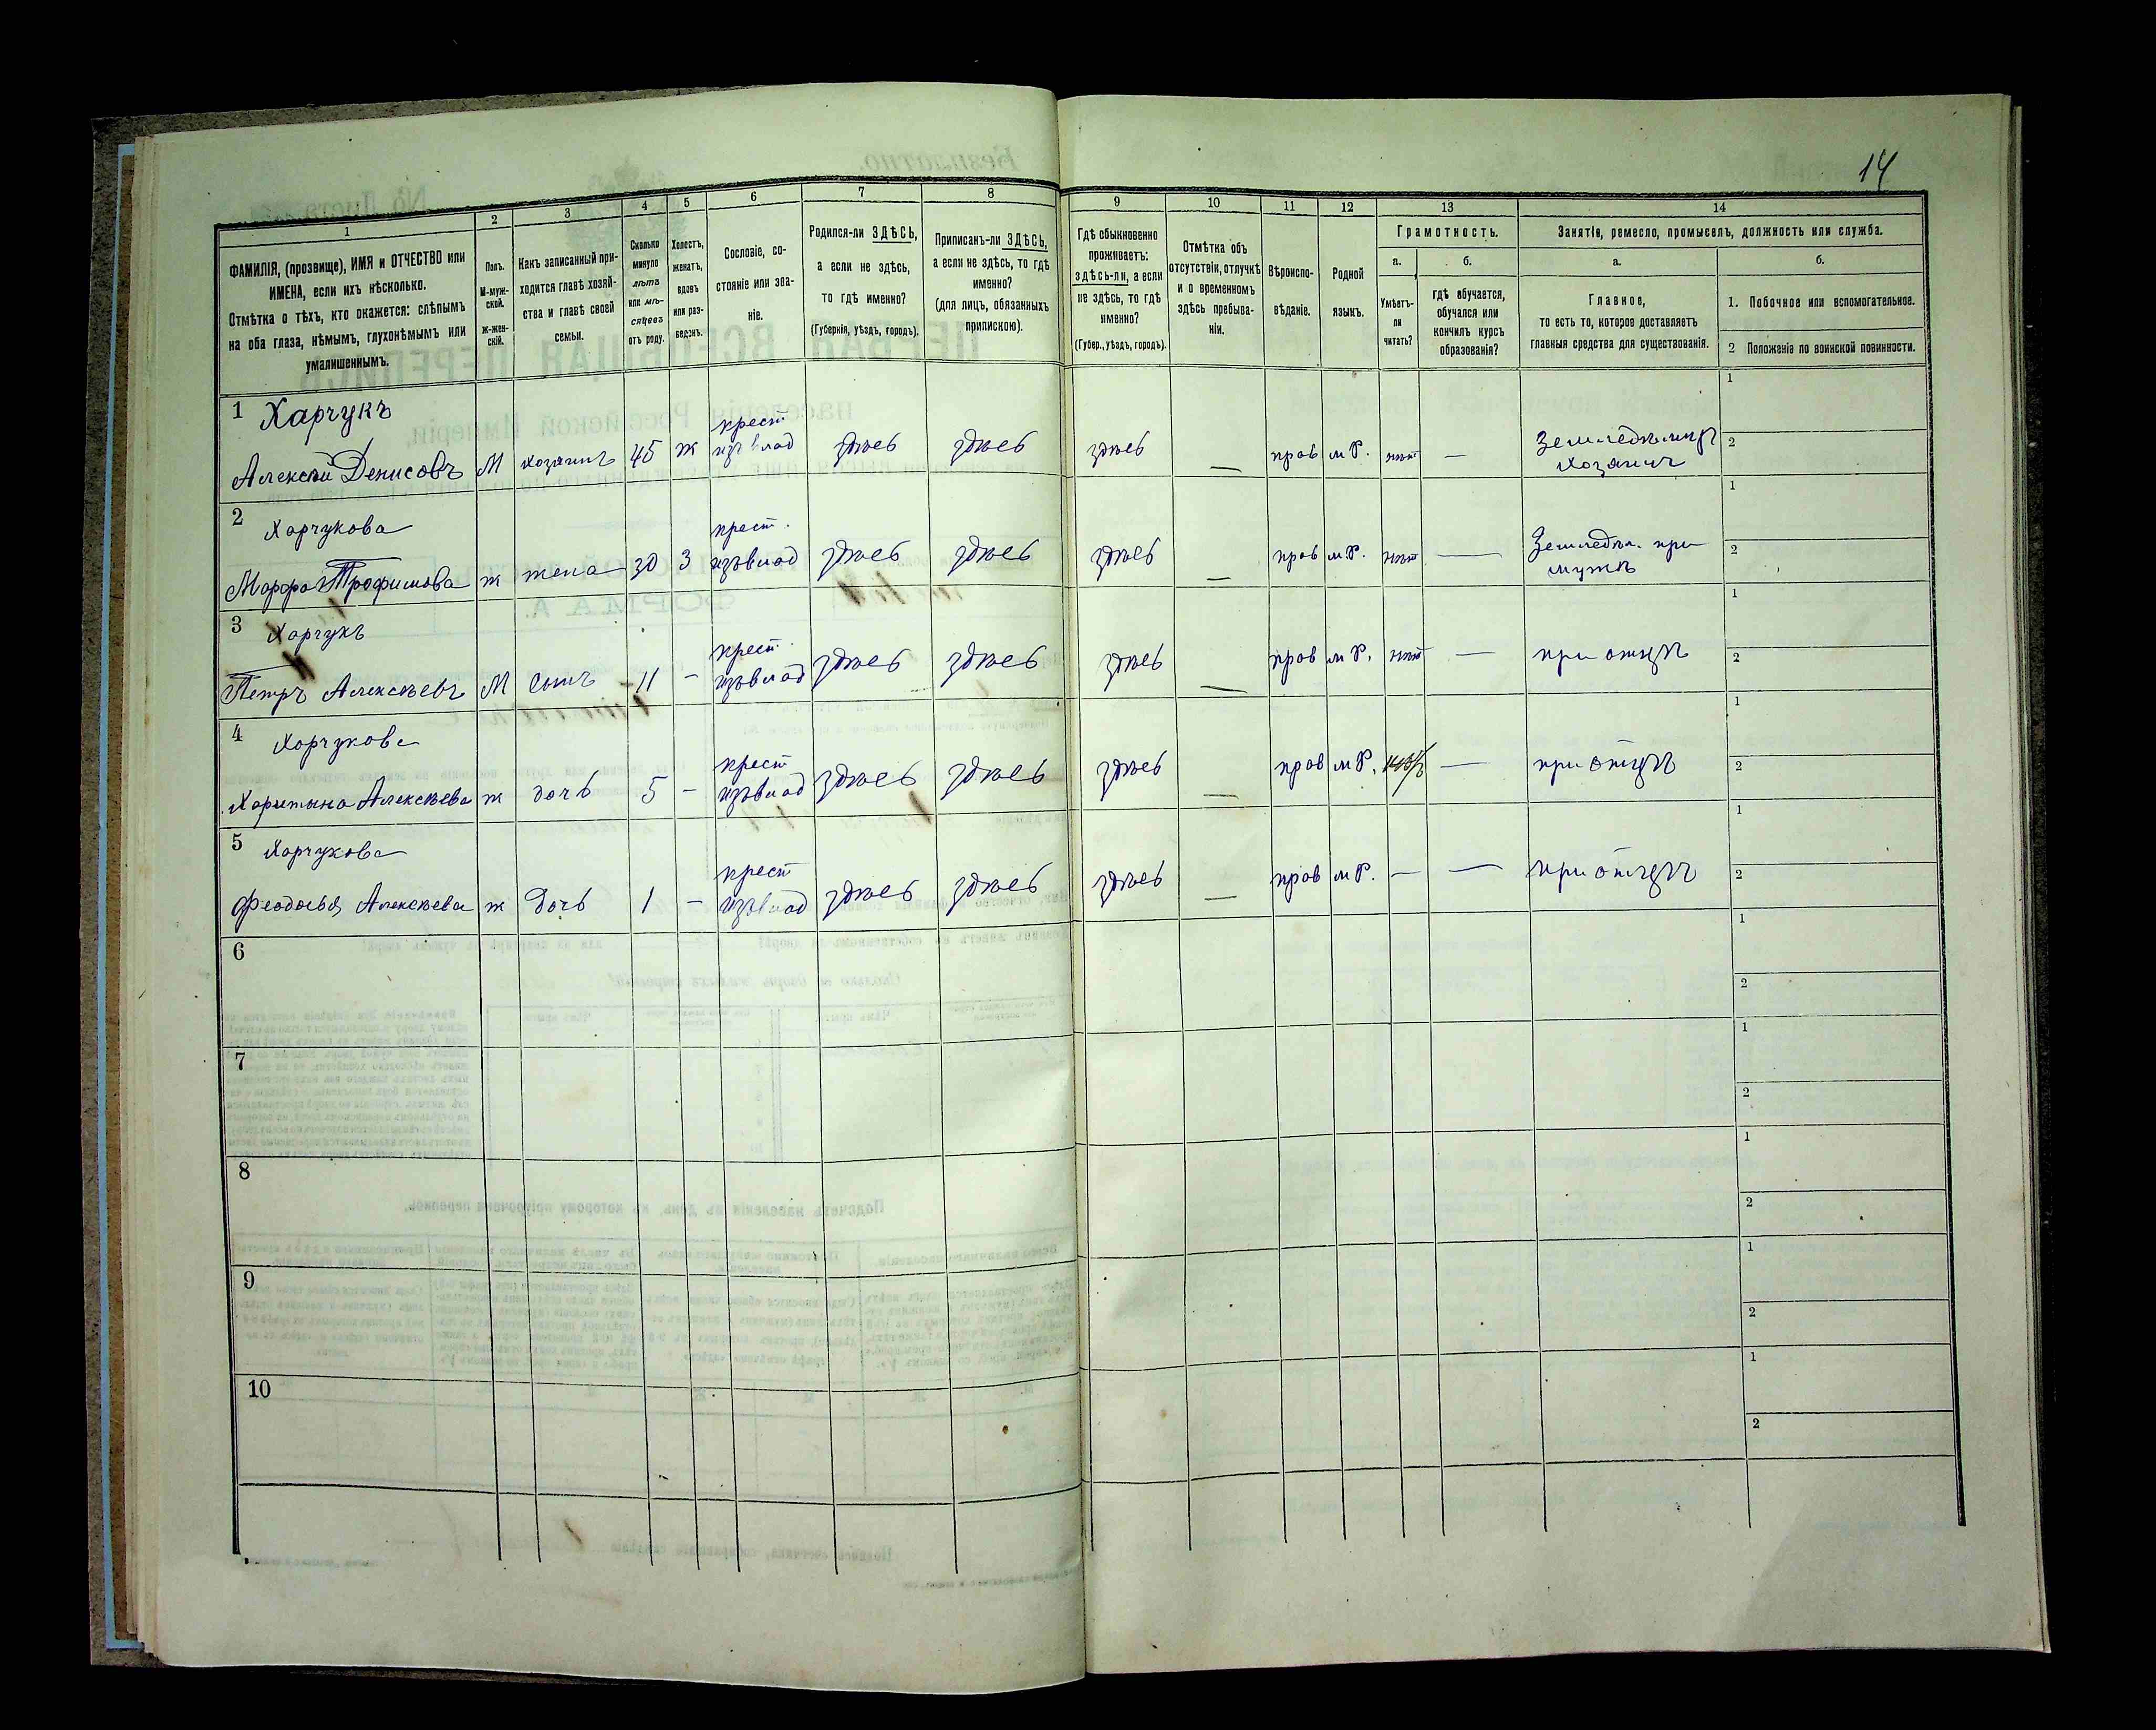 14
1
2
3
4
5
6
7
8
9
10
11
12
13
14
ФАМИЛІЯ, (прозвище), ИМЯ и ОТЧЕСТВО или
ИМЕНА, если ихъ нѣсколько.
Отмѣтка о тѣхъ, кто окажется: слѣпымъ
на оба глаза, нѣмымъ, глухонѣмымъ или
умалишеннымъ.
Полъ.
М-муж-
ской.
Ж-жен-
скій.
Какъ записанный при-
ходится главѣ хозяй-
ства и главѣ своей
семьи.
Сколько
минуло
лѣтъ
или мѣ-
сяцевъ
отъ роду.
Холостъ,
женатъ,
вдовъ
или раз-
веденъ.
Сословіе, со-
стояніе или зва-
ніе.
Родился-ли ЗДѢСЬ,
а если не здѣсь,
то гдѣ именно?
(Губернія, уѣздъ, городъ).
Приписанъ-ли ЗДѢСЬ,
а если не здѣсь, то гдѣ
именно?
(для лицъ, обязанныхъ
припискою).
Гдѣ обыкновенно
проживаетъ:
здѣсь-ли, а если
не здѣсь, то гдѣ
именно?
(Губер., уѣздъ, городъ).
Отмѣтка объ
отсутствіи, отлучкѣ
и о временномъ
здѣсь пребыва-
ніи.
Вѣроиспо-
вѣданіе.
Родной
языкъ.
Грамотность.
а.
Умѣетъ-
ли
читать?
б.
гдѣ обучается,
обучался или
кончилъ курсъ
образованія?
Занятіе, ремесло, промыселъ, должность или служба.
а.
Главное,
то есть то, которое доставляетъ
главныя средства для существованія.
б.
1. Побочное или вспомогательное.
2 Положеніе по воинской повинности.
1 Харчукъ
Алексѣй Денисовъ М хозяинъ 45 ж крест
изъ влад здѣсь здѣсь здѣсь — прав м Р. нѣт — Земледѣлецъ
хозяинъ
1
2
2 Харчукова
Марфа Трофимова ж жена 30 З крест.
изъ влад здѣсь здѣсь здѣсь — прав м Р. нѣт — Земледѣл. при
мужѣ
1
2
3 Харчукъ
Петръ Алексѣевъ М сынъ 11 - крест
изъ влад здѣсь здѣсь здѣсь — прав м Р. нѣт — при отцѣ
1
2
4 Харчукова
Харитына Алексѣева ж дочь 5 - крест
изъ влад здѣсь здѣсь здѣсь — прав м Р. — при отцѣ
1
2
5 Харчукова
Феодосья Алексѣева ж дочь 1 - крест
изъ влад здѣсь здѣсь здѣсь — прав м Р. — — при отцѣ
1
2
6
1
2
7
1
2
8
1
2
9
1
2
10
1
2